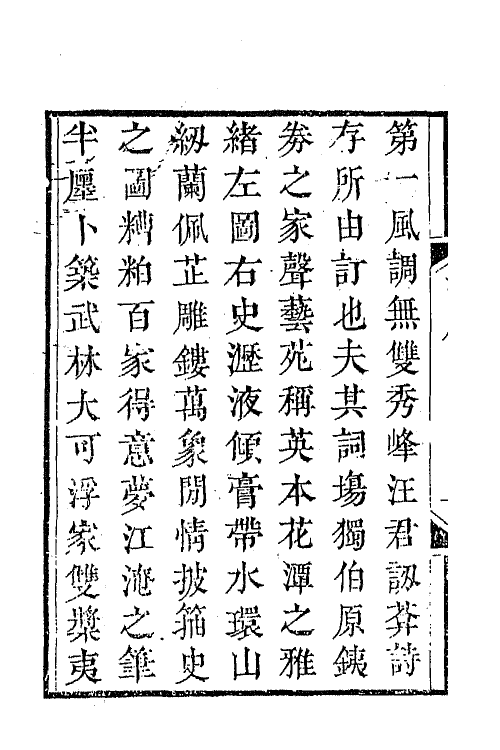 第一風調無雙秀峰汪君訒葊詩
存所由訂也夫其詞塲獨伯原錢
劵之家聲藝苑稱英本花潭之雅
緒左圖右史瀝液傾膏帶水環山
紉蘭佩芷雕鏤萬象閒情披箍史
之圖糟粕百家得意夢江淹之筆
半廛卜築武林大可浮家雙槳夷